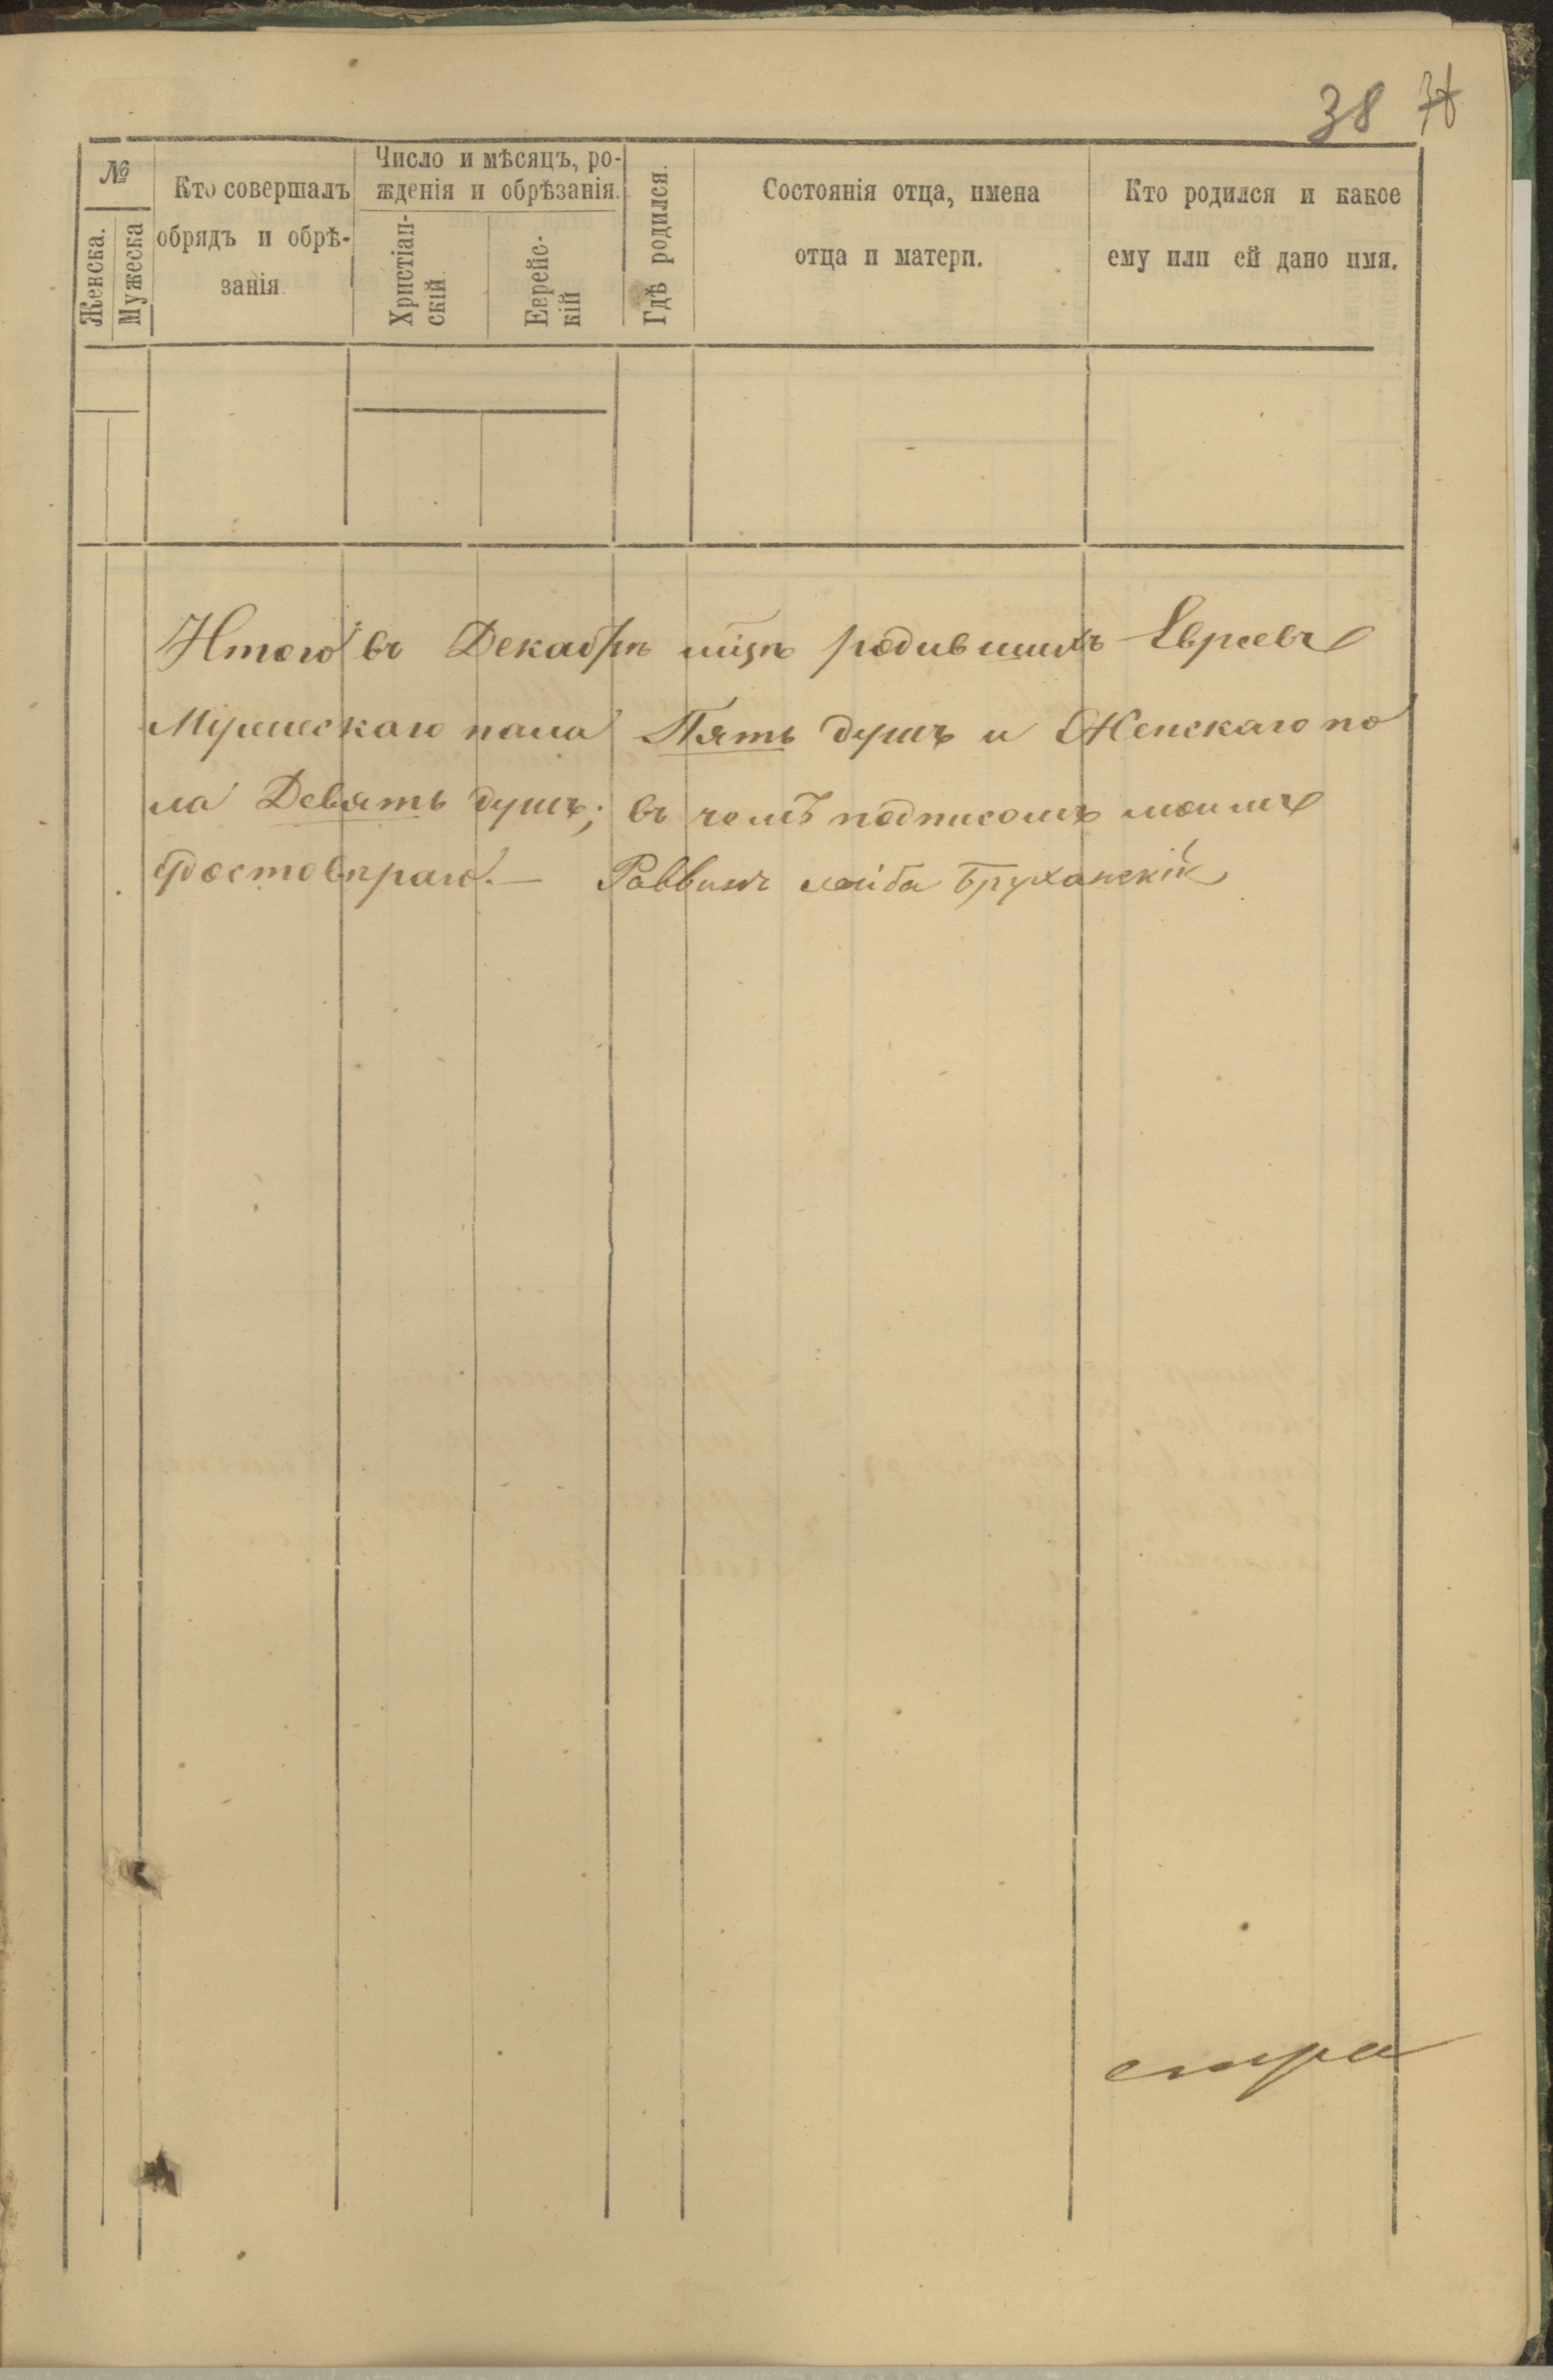 38
№
Женска.
Мужеска
Кто совершалъ
обрядъ и обрѣ-
занія
Число и мѣсяцъ, ро-
жденія и обрѣзанія.
Христіан-
скій
Еврейс-
кій
Гдѣ родился.
Состоянія отца, имена
отца и матери.
Кто родился и какое
ему или ей дано имя.
Итого въ Декабрѣ мцѣ родившихъ Евреевъ
Мужескаго пола Пять душъ и Женскаго по
ла Девять душъ; въ чемъ подписомъ моимъ
Удостовѣраю.— Раввинъ Лейба Бруханскій